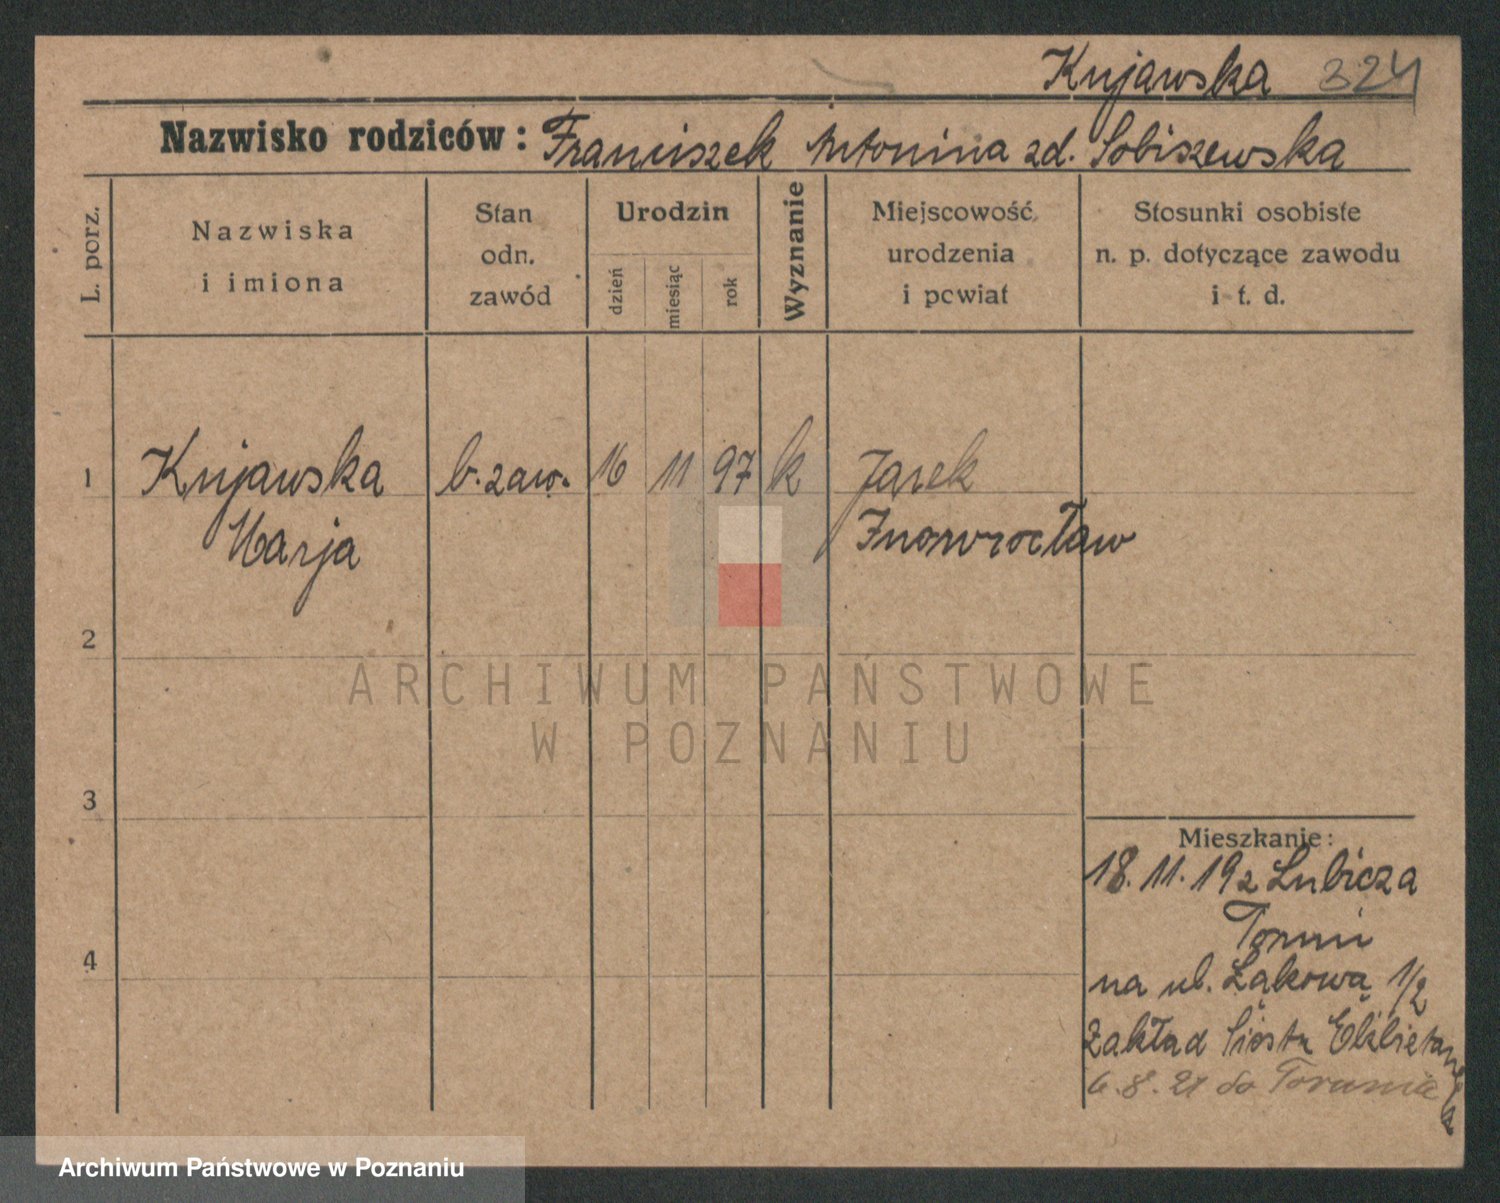 Kujawska 324
Nazwisko rodziców: Franciszek Antonina zd. Sobiszewska
L. porz.
Nazwiska
i imiona
Stan
odn.
zawód
Urodzin
dzień
miesiąc
rok
Wyznanie
Miejscowość
urodzenia
i powiat
Stosunki osobiste
n. p. dotyczące zawodu
i t. d.
1 Kujawska b. zaw. 16 11 97 k Jarek
Marja Inowrocław
2
3
4
ARCHIWUM PAŃSTWOWE
W POZNANIU
Mieszkanie:
18. 11. 19 z Lubicza
Toruń
na ul. Łąkową 1/2
Zakład Siostr Elżbietanek
6. 8. 21 do Torunia
Archiwum Państwowe w Poznaniu